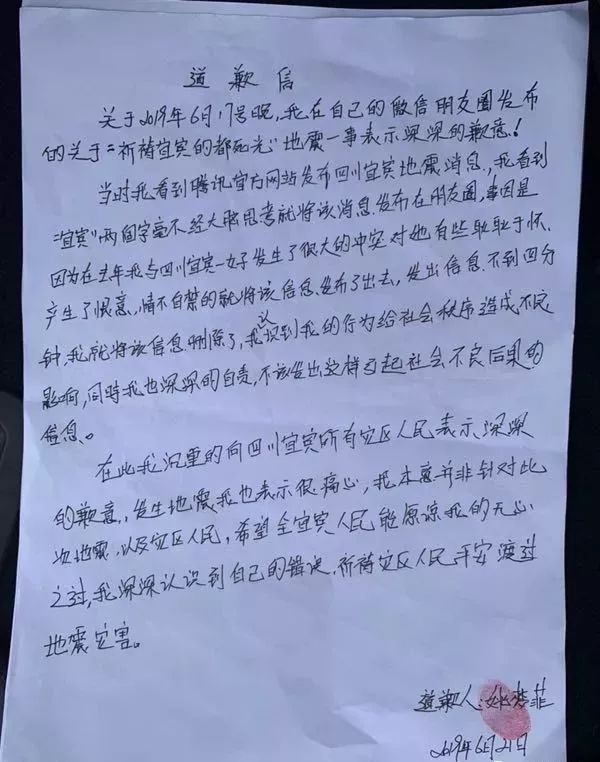 道歉信
关于2019年6月17号晚,我在自己的微信朋友圈发布
的关于“祈祷宜宾的都死光”地震一事表示深深的歉意!
当时我看到腾讯官方网站发布四川宜宾地震消息,我看到
“宜宾”两个字毫不经大脑思考就将该消息发布在朋友圈,事因是
因为在去年我与四川宜宾一女子发生了很大的冲突对她有些耿耿于怀.
产生了恨意,情不自禁的就将该信息发布了出去,发出信息不到四分
钟,我就将该信息删除了,我认识到我的行为给社会秩序造成不良
影响,同时我也深深的自责,不该发出这样引起社会不良后果的
信息。
在此我沉重的向四川宜宾所有灾区人民表示深深
的歉意,发生地震我也表示很痛心,我本意并非针对此
次地震,以及灾区人民,希望全宜宾人民能原谅我的无心
之过,我深深认识到自己的错误.祈祷灾区人民平安渡过
地震灾害。
道歉人:姚梦菲
2019年6月21日